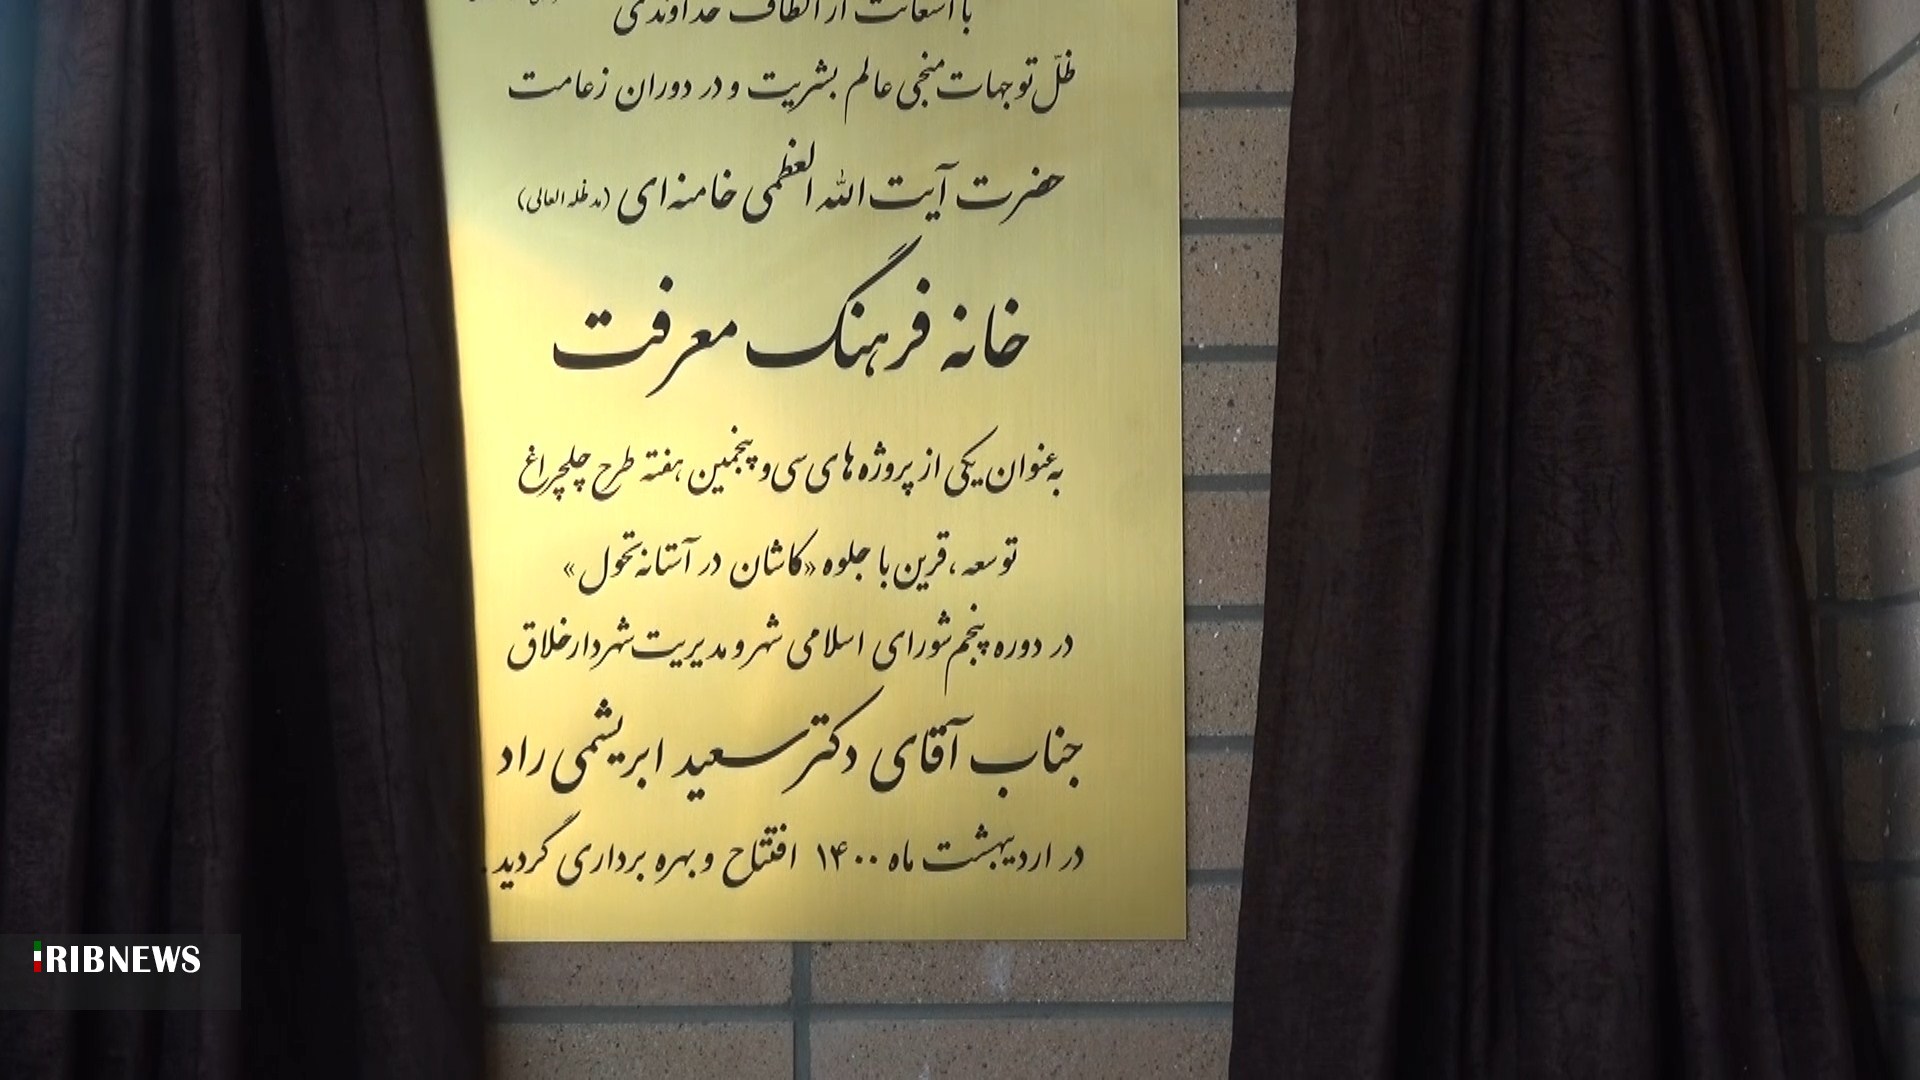 با استعانت از الطاف خداوندی
ظلّ توجهات منجی عالم بشریت و در دوران زعامت
حضرت آیت الله العظمی خامنه‌ای (مدظله العالی)
خانه فرهنگ معرفت
به عنوان یکی از پروژه های سی و پنجمین هفته طرح چلچراغ
توسعه، قرین با جلوه «کاشان در آستانه تحول»
در دوره پنجم شورای اسلامی شهر و مدیریت شهردار خلاق
جناب آقای دکتر سعید ابریشمی راد
در اردیبهشت ماه ۱۴۰۰ افتتاح و بهره برداری گردید.
IRIBNEWS